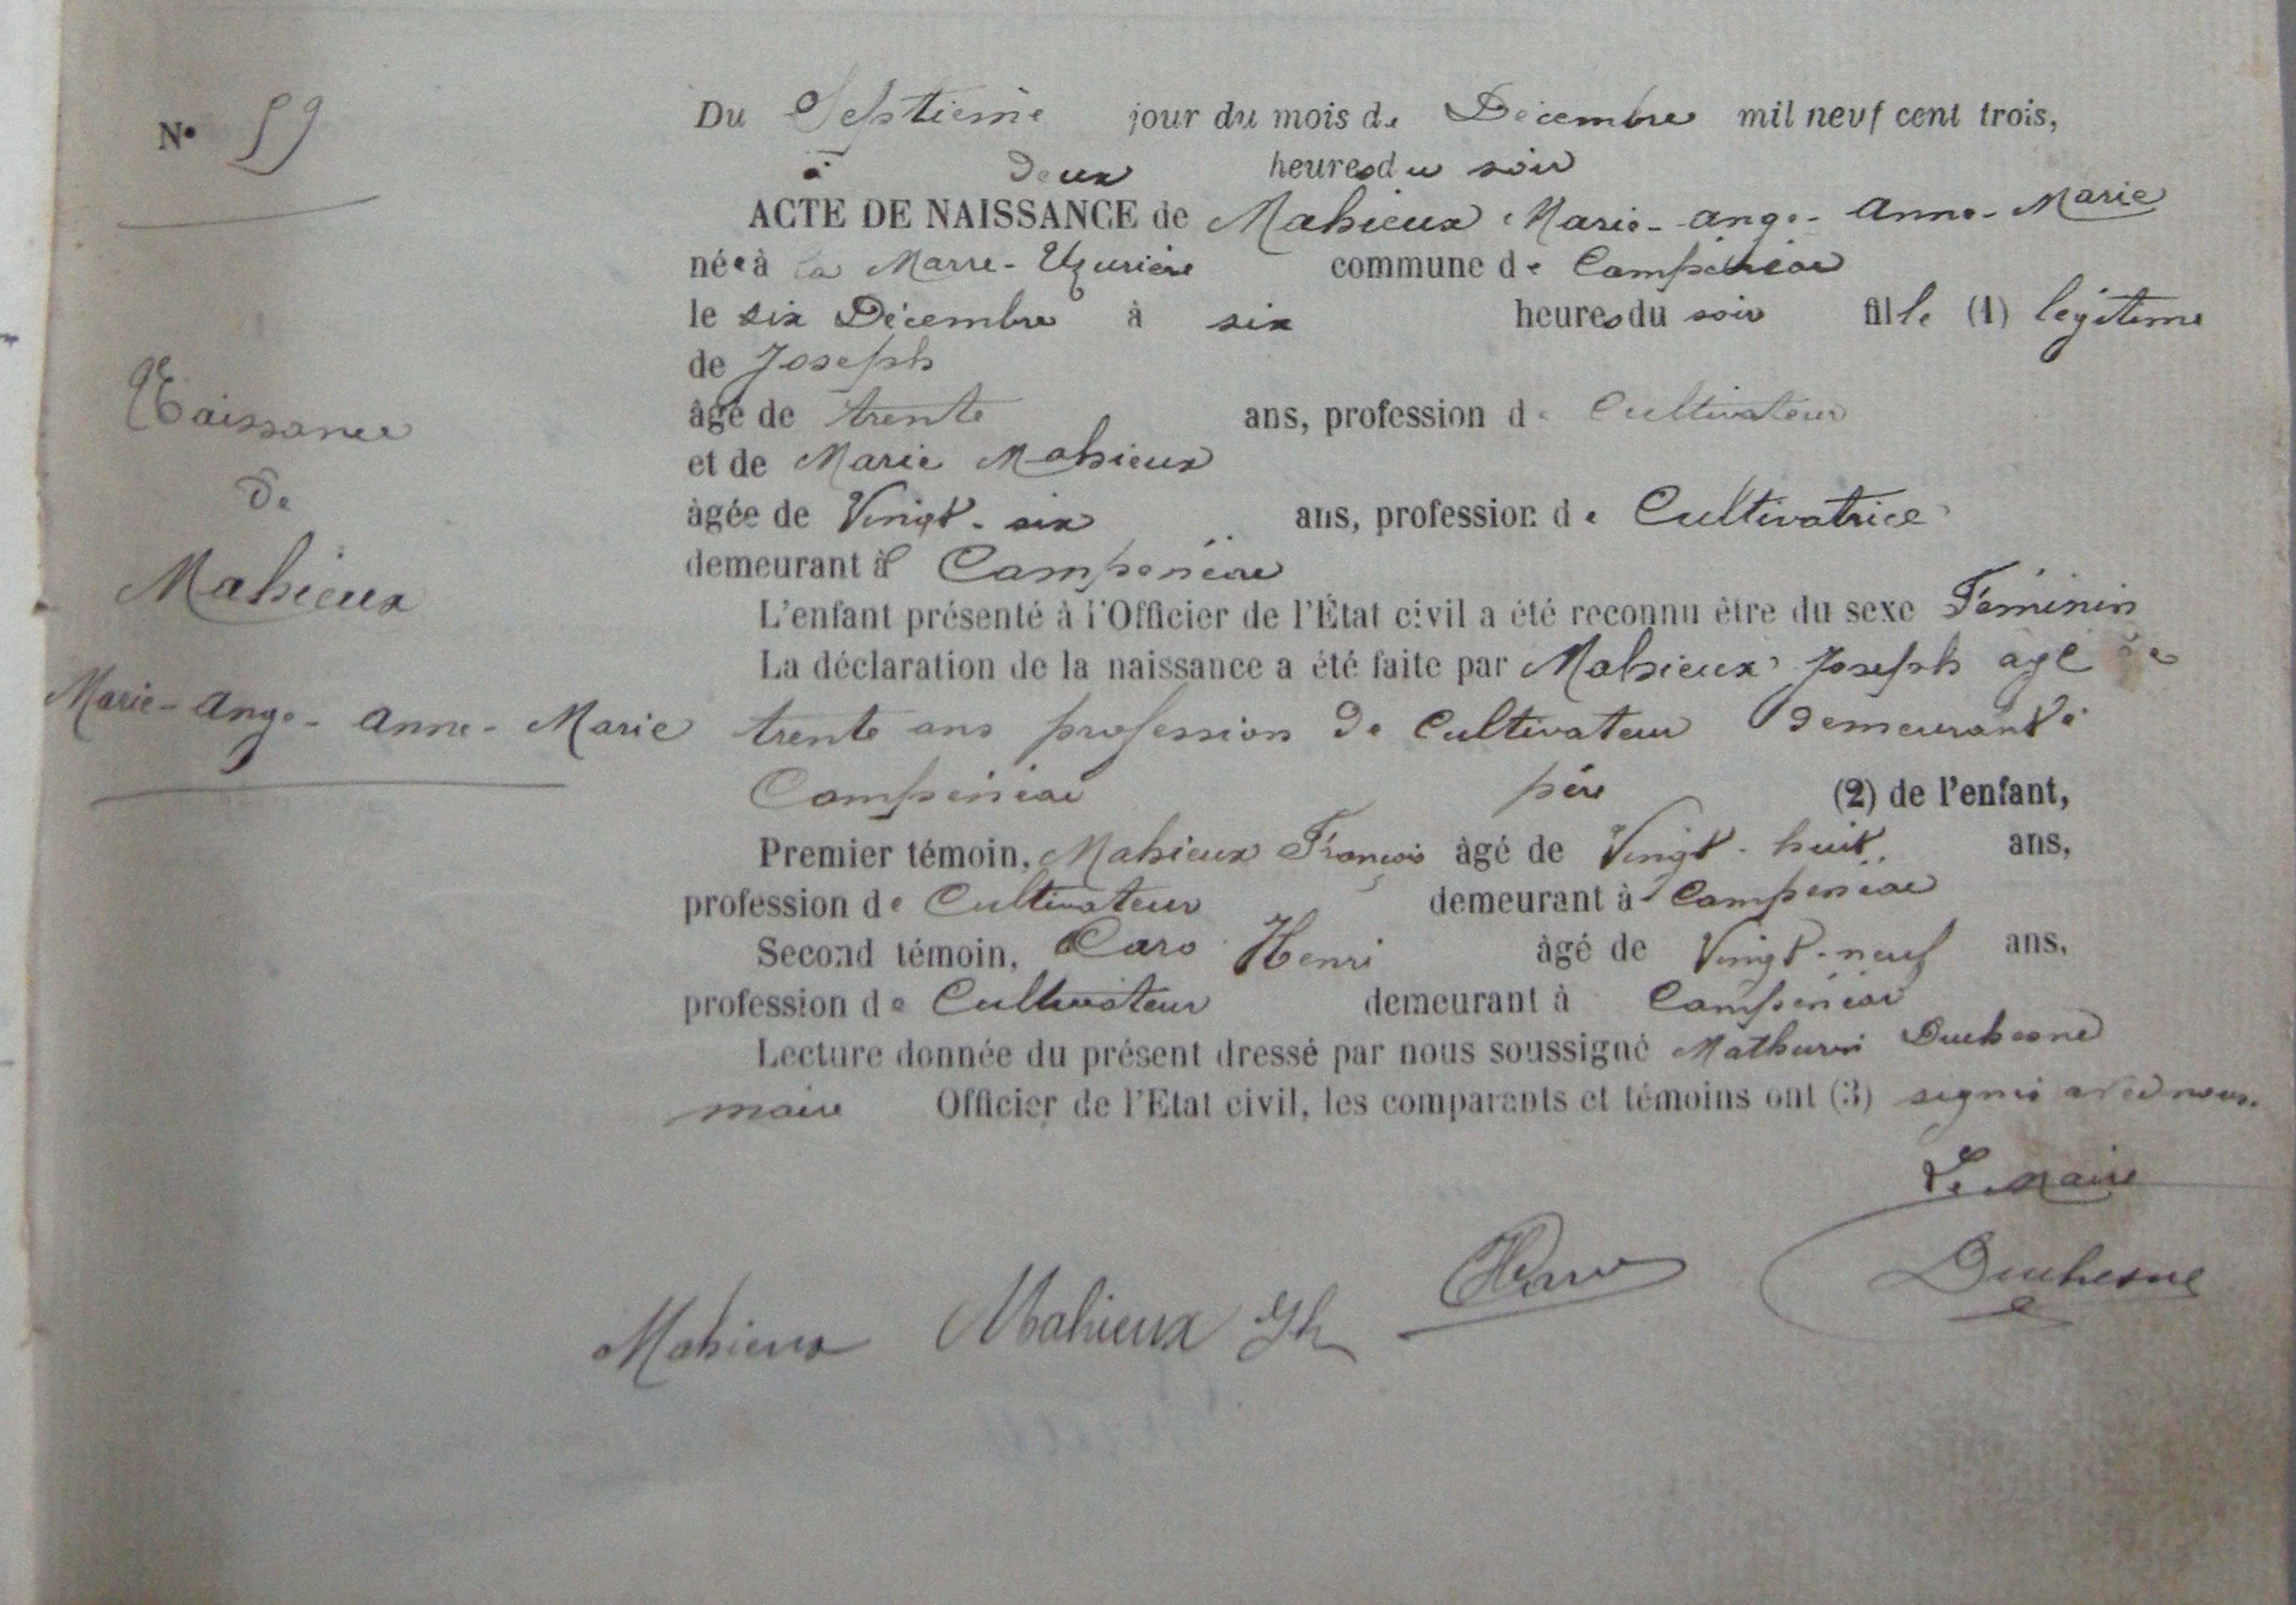 N° 59
Du Septième jour du mois de Décembre mil neuf cent trois,
à deux heures du soir
ACTE DE NAISSANCE de Mahieux Marie-Ange-Anne-Marie
née à la Marre-Uzurière commune de Campénéac
le six Décembre à six heures du soir fille (1) légitime
de Joseph
âgé de trente ans, profession de Cultivateur
et de Marie Mahieux
âgée de Vingt-six ans, profession de Cultivatrice
demeurant à Campénéac
L'enfant présenté à l'Officier de l'État civil a été reconnu être du sexe Féminin
La déclaration de la naissance a été faite par Mahieux Joseph âgé de
trente ans profession de Cultivateur demeurant à
Campénéac père (2) de l'enfant,
Premier témoin, Mahieux François âgé de Vingt-huit ans,
profession de Cultivateur demeurant à Campénéac
Second témoin, Caro Henri âgé de Vingt-neuf ans,
profession de Cultivateur demeurant à Campénéac
Lecture donnée du présent dressé par nous soussigné Mathurin Duchesne
maire Officier de l'Etat civil, les comparants et témoins ont (3) signé avec nous.
Naissance
de
Mahieux
Marie-Ange-Anne-Marie
Le maire
Mahieux Mahieux Jh HCaro Duchesne